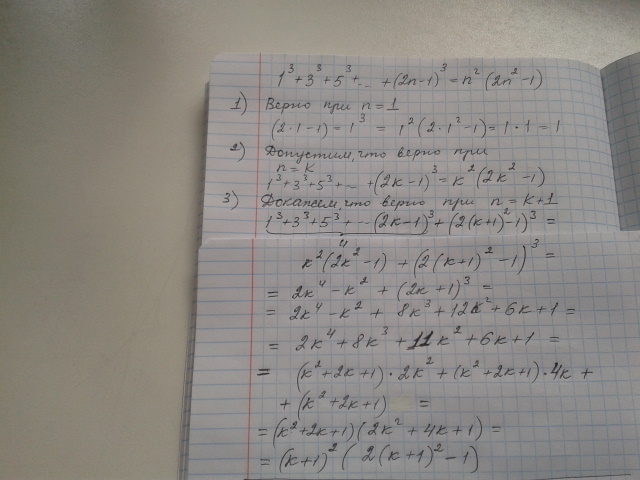 1³+3³+5³+... +(2n-1)³=n²(2n²-1)
1) Верно при n=1
(2·1-1)=1³ = 1²(2·1²-1)=1·1=1
2) Допустим, что верно при
n=k
1³+3³+5³+... +(2k-1)³=k²(2k²-1)
3) Докажем, что верно при n=k+1
1³+3³+5³+...(2k-1)³+(2(k+1)²-1)³=
k²(2k²-1) +(2(k+1)²-1)³=
= 2k⁴-k² +(2k+1)³=
= 2k⁴-k²+ 8k³+12k²+6k+1=
= 2k⁴+8k³+11k²+6k+1=
= (k²+2k+1)·2k²+(k²+2k+1)·4k+
+(k²+2k+1) =
=(k²+2k+1)(2k²+4k+1)=
=(k+1)²(2(k+1)²-1)